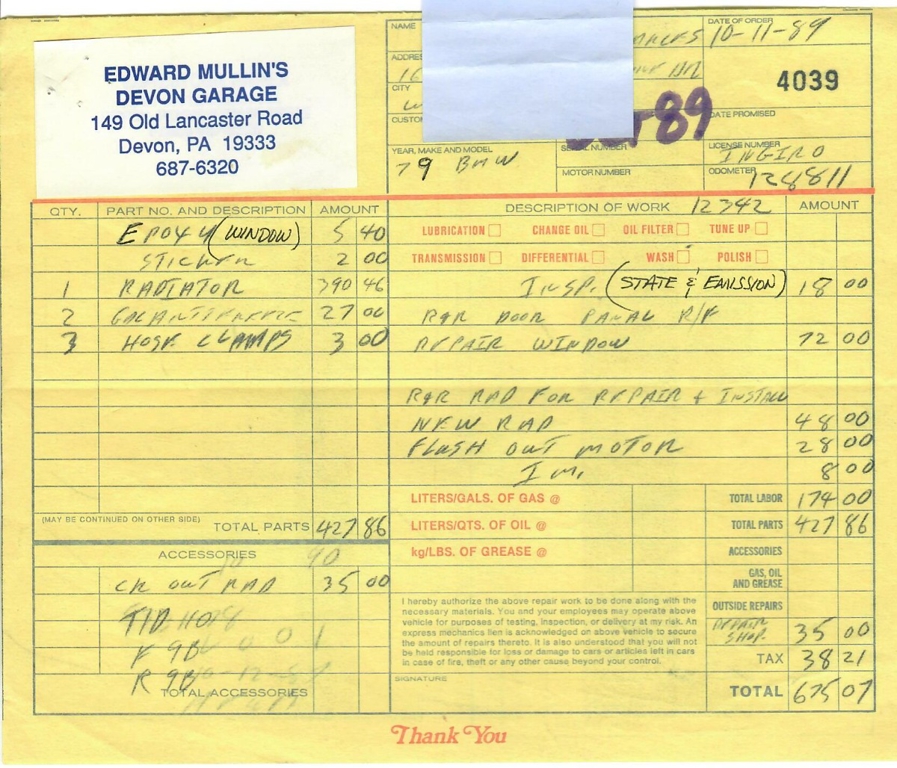 EDWARD MULLIN'S
DEVON GARAGE
149 Old Lancaster Road
Devon, PA 19333
687-6320
NAME
DATE OF ORDER
10-11-89
ADDRE
4039
CITY
CUSTO
89
DATE PROMISED
YEAR, MAKE AND MODEL
79 BMW
SERIAL NUMBER
MOTOR NUMBER
LICENSE NUMBER
INGIRO
ODOMETER
QTY. PART NO. AND DESCRIPTION AMOUNT
EPOXY (WINDOW) 5 40
STICKER 2 00
1 RADIATOR 390 46
2 GAL ANTIFREEZE 27 00
3 HOSE CLAMPS 3 00
(MAY BE CONTINUED ON OTHER SIDE) TOTAL PARTS 427 86
ACCESSORIES
CK OUT RAD 35 00
F 9B
R 9B
TOTAL ACCESSORIES
DESCRIPTION OF WORK 12342 AMOUNT
LUBRICATION CHANGE OIL OIL FILTER TUNE UP
TRANSMISSION DIFFERENTIAL WASH POLISH
INSP. (STATE & EMISSION) 18 00
R&R DOOR PANAL R/F
REPAIR WINDOW 72 00
R&R RAD FOR REPAIR + INSTALL
NEW RAD 48 00
FLUSH OUT MOTOR 28 00
I M. 8 00
LITERS/GALS. OF GAS @ TOTAL LABOR 174 00
LITERS/QTS. OF OIL @ TOTAL PARTS 427 86
kg/LBS. OF GREASE @ ACCESSORIES
GAS, OIL
AND GREASE
I hereby authorize the above repair work to be done along with the
necessary materials. You and your employees may operate above
vehicle for purposes of testing, inspection, or delivery at my risk. An
express mechanics lien is acknowledged on above vehicle to secure
the amount of repairs thereto. It is also understood that you will not
be held responsible for loss or damage to cars or articles left in cars
in case of fire, theft or any other cause beyond your control.
SIGNATURE
OUTSIDE REPAIRS
REPAIR
SHOP. 35 00
TAX 38 21
TOTAL 675 07
Thank You